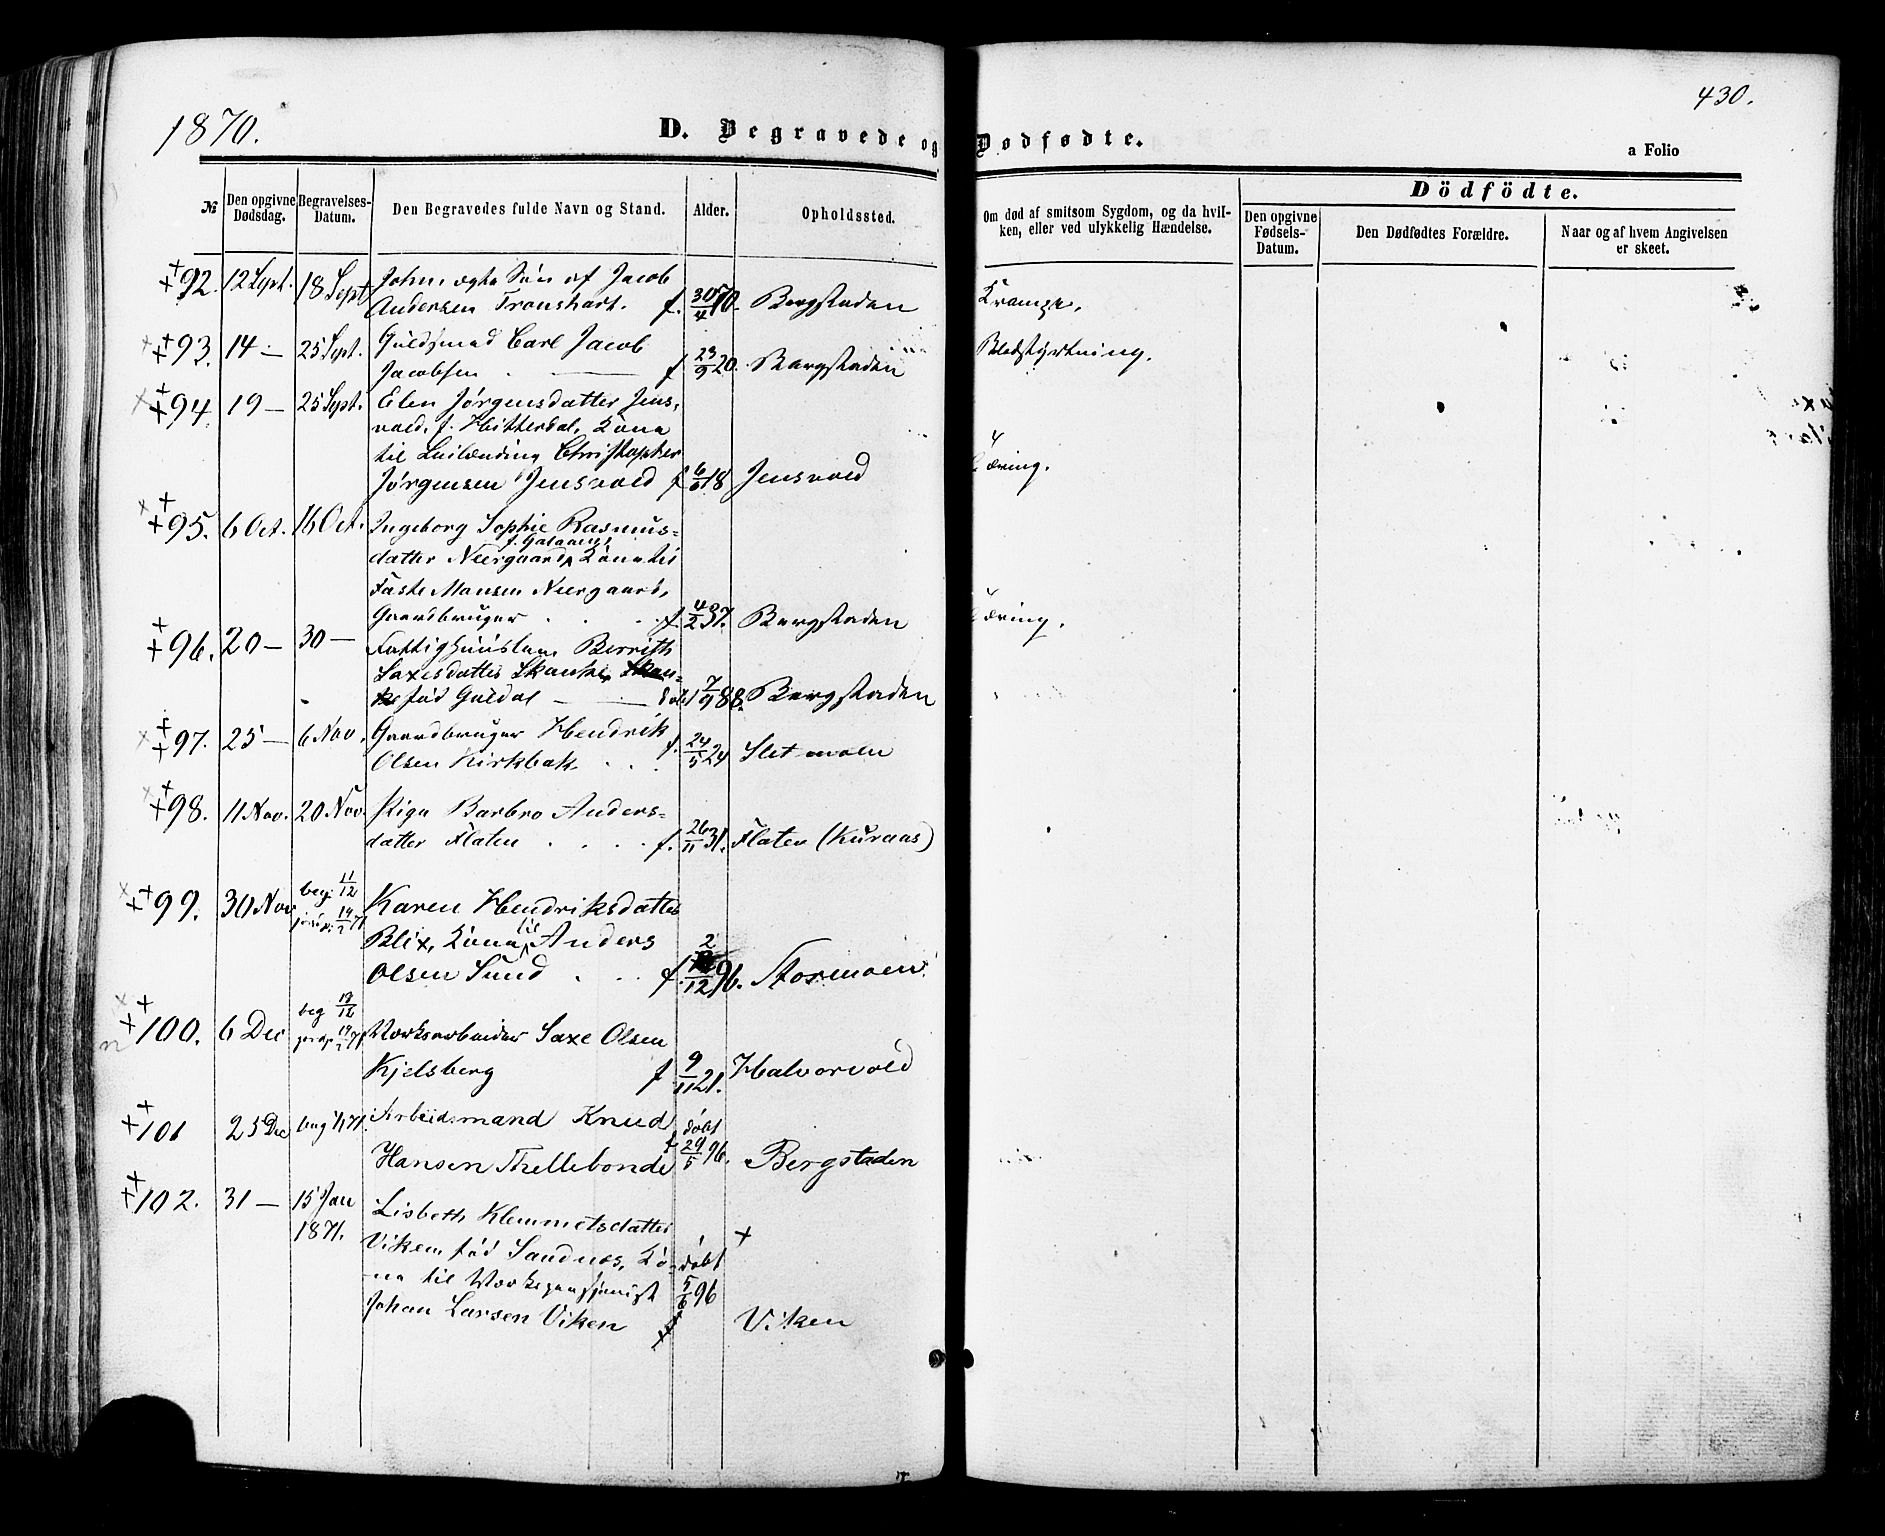 1870.
D. Begravede og Dødfødte.
430.
a Folio
№
Den opgivne Dødsdag.
Begravelses-Datum.
Den Begravedes fulde Navn og Stand.
Alder.
Opholdssted.
Om død af smitsom Sygdom, og da hvilken, eller ved ulykkelig Hændelse.
Dödfödte.
Den opgivne Fødsels-Datum.
Den Dødfødtes Forældre.
Naar og af hvem Angivelsen er skeet.
92. 12 Sept. 18 Sept John ægte Søn af Jacob
Andersen Tronshart. f. 30/4 70. Bergstaden Krampe.
93. 14 — 25 Sept. Guldsmed Carl Jacob
Jacobsen f 23/9 20. Bergstaden Blodstyrtning.
94. 19 — 25 Sept. Elen Jørgensdatter Jens-
vold, f. Hitterdal, Kone
til Leilænding Christopher
Jørgensen Jensvold f 6/6 18 Jensvold Tæring.
95. 6 Oct. 16 Oct. Ingeborg Sophie Rasmus-
datter Neergaard, Kone til
Faste Mansen Neergaard,
Gaardbruger f. 4/2 37. Bergstaden Tæring.
96. 20 — 30 — Fattighuuslem Berrith
Saxesdatter Skanke
fød Guldal — døbt 7/9 88. Bergstaden
97. 25 — 6 Nov. Gaardbruger Hendrik
Olsen Kirkbak f. 24/5 24 Sletmoen
98. 11 Nov. 20 Nov. Pige Barbro Anders-
datter Flaten f. 26/11 31. Flaten (Kuraas)
99. 30 Nov beg. 11/12 Karen Hendriksdatter
Blix, Kone til Anders
Olsen Sund f. 2/12 96. Stormoen
100. 6 Dec beg 18/12 Værksarbeider Saxe Olsen
Kjelsberg f 9/11 21. Halvorvold
101 25 Dec Arbeidsmand Knud døbt
Hansen Thellebonde f 29/5 96. Bergstaden
102. 31 — 15 Jan
1871. Lisbeth Klemmetsdatter
Viken fød Sandnes, Ko- døbt
ne til Værkspensjonist 5/6 96
Johan Larsen Viken Viken